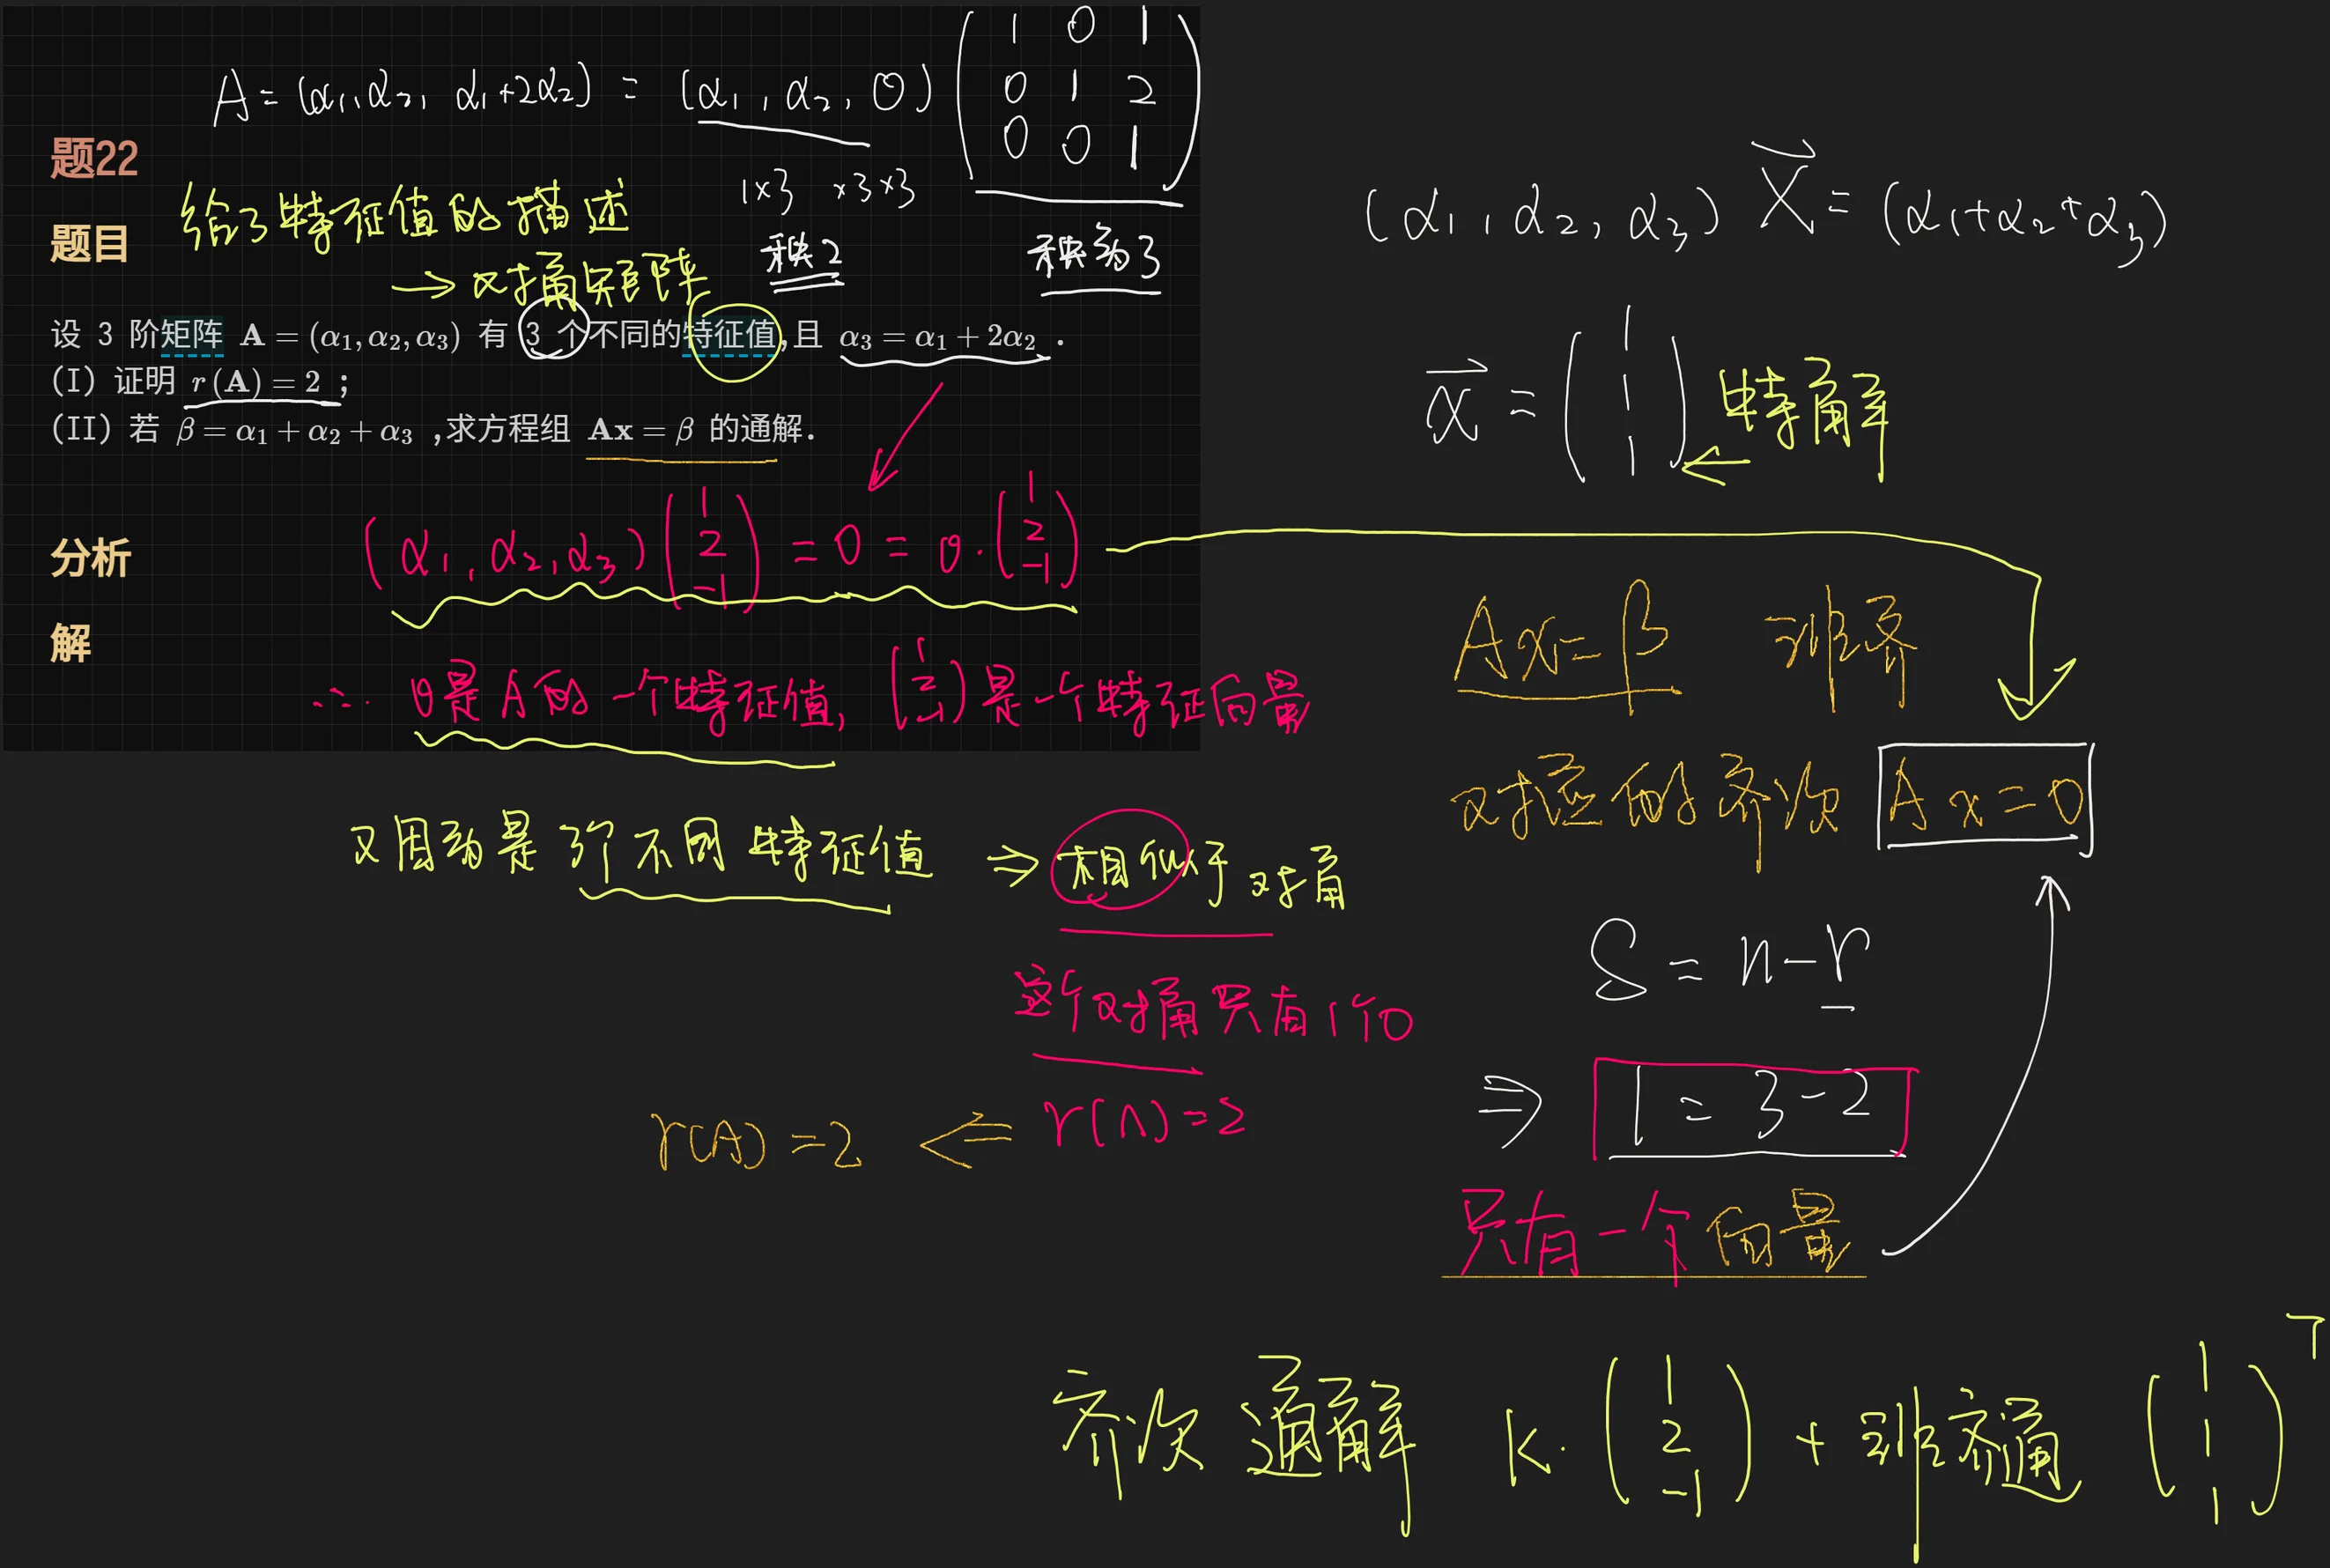 A = (α₁, α₂, α₁+2α₂) = (α₁, α₂, 0) ( 1 0 1
0 1 2
0 0 1 )
题22
1×3 ×3×3
给了特征值的描述
题目
秩2 秩为3
→ 对角矩阵
设 3 阶矩阵 A = (α₁, α₂, α₃) 有 3 个不同的特征值,且 α₃ = α₁ + 2α₂ .
(I) 证明 r(A) = 2 ;
(II) 若 β = α₁ + α₂ + α₃ ,求方程组 Ax = β 的通解.
分析
(α₁, α₂, α₃) (1 2 -1) = 0 = 0·(1 2 -1)
解
∴ 0是A的一个特征值, (1 2 -1) 是一个特征向量
又因为是3个不同特征值 ⇒ 相似于对角
这个对角只有1个0
r(A)=2 ⇐ r(Λ)=2
(α₁, α₂, α₃) X = (α₁+α₂+α₃)
x = (1 1 1) 特解
Ax=β 非齐
对应的齐次 Ax=0
S = n-r
⇒ 1 = 3-2
只有一个向量
齐次通解 k·(1 2 -1) + 非齐通 (1 1 1)ᵀ